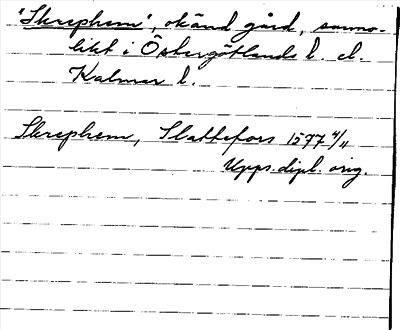 'Skrephem', okänd gård, sanno-
likt i Östergötlands l. el.
Kalmar l.
Skrephem, Slattefors 1577 4/11
Upps. dipl. orig.